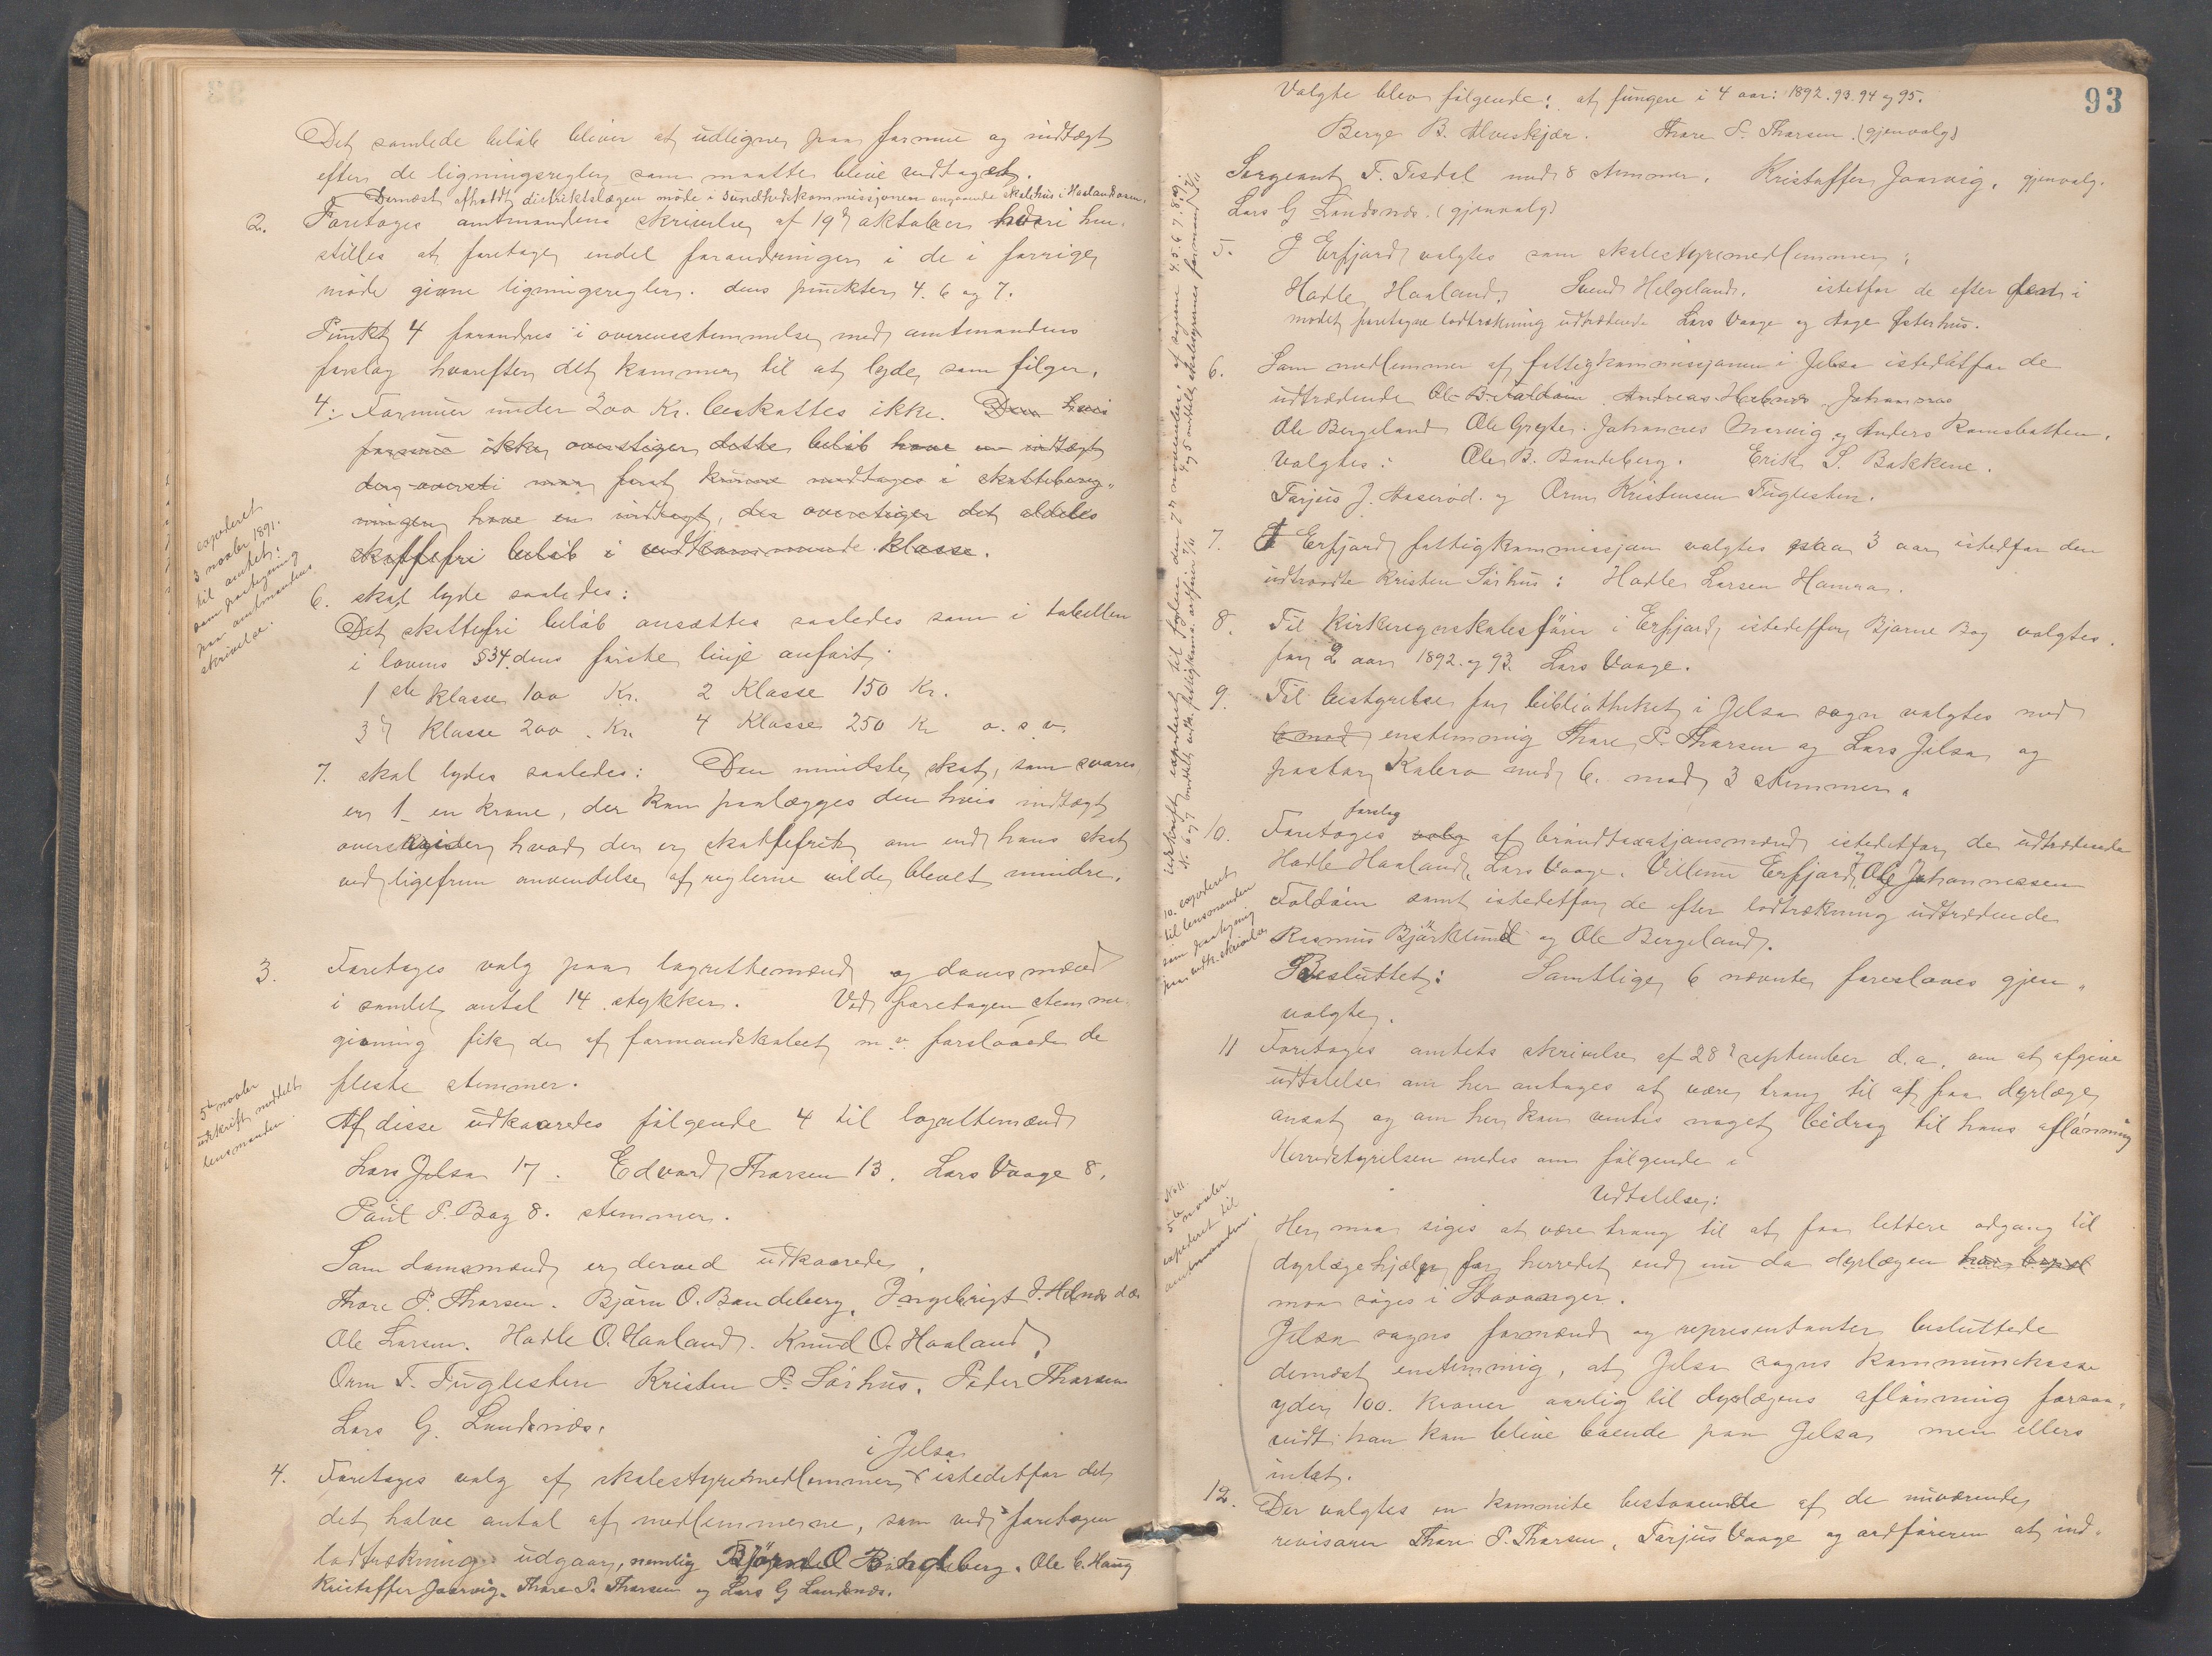 Det samlede beløb bliver at udligne paa formue og indtægt
efter de ligningsregler som maatte blive vedtaget.
Dernæst afholdt distriktslægen møde i sundhedskommissjonen angaaende skolehus i
2. Foretoges amtmandens skrivelse af 19de oktober hvori hen-
stilles at foretage endel forandringer i de i forrige
møde givne ligningsregler. dens punkter 4. 6 og 7.
Punkt 4 forandres i overensstemmelse med amtmandens
forslag hvorefter det kommer til at lyde som følger.
4. Formuer under 200 Kr. beskattes ikke. Den hvis
formue ikke overstiger dette beløb have en indtægt
for at kunne medtages i skattebereg-
ningen have en indtægt, der overstiger det aldeles
skattefri beløb i vedkommende klasse.
expederet
3 novbr 1891.
til amtet
som paategning
paa amtmandens
skrivelse.
6. skal lyde saaledes:
Det skattefri beløb ansættes saaledes som i tabellen
i lovens §34. dens første linje anført.
1ste klasse 100 Kr. 2 Klasse 150 Kr.
3de klasse 200 Kr. 4 Klasse 250 Kr o. s. v.
7. skal lyde saaledes: Den mindste skat, som svares
er 1 en krone, der kan paalægges den hvis indtægt
overstiger hvad der er skattefrit om end hans skat
ved ligefrem anvendelse af reglerne vilde blevet mindre.
3. Foretoges valg paa lagrettemænd og domsmænd
i samlet antal 14 stykker. Ved foretagen stemme-
givning fik de af formandskabet m. v. foreslaaede de
fleste stemmer.
5te novbr
udskrift meddelt
lensmanden
Af disse udkaaredes følgende 4 til lagrettemænd
Lars Jelsa 17. Edvard Thorsen 13. Lars Vaage 8.
Paul P. Bag 8. stemmer.
Som domsmænd er derved udkaarede,
Thore P. Thorsen. Bjørn O. Bandeberg. Ingebrigt J. Hebnes
Ole Larsen. Hadle O. Haaland. Knud O. Haaland,
Orm T. Fuglestein Kristen P. Sørhus. Peder Thorsen
Lars G. Landsnes.
i Jelsa
4. Foretoges valg af skolestyremedlemmer istedetfor det
det halve antal af medlemmerne, som ved foretagen
lodtrækning udgaar, nemlig Bjørn O Bandeberg. Ole C. Haug
Kristoffer Jaarvig. Thore P. Thorsen og Lars G Landsnes.
93
Valgte blev følgende: at fungere i 4 aar: 1892. 93. 94 og 95.
Berge B. Alveskjær. Thore P. Thorsen (gjenvalg)
Sergeant T. Tisdal med 8 stemmer. Kristoffer Jaarvig, gjenvalg.
Lars G Landsnes. (gjenvalg)
5. I Erfjord valgtes som skolestyremedlemmer:
Hadle Haaland, Svend Helgeland. istetfor de efter den i
mødet foretagne lodtrækning udtrædende Lars Vaage og Aage Østerhus.
6. Som medlemmer af fattigkommissjonen i Jelsa istedetfor de
udtrædende Ole B. Foldøen Andreas Hebnes
Ole Bergeland Ole Grefte. Johannes Marvig og Anders Ramsbotten.
Valgtes: Ole B. Bandeberg. Erik S. Bakkene.
Tarjus J. Aaserød. og Orm Kristensen Fuglestein.
7. I Erfjord fattigkommissjon valgtes paa 3 aar istedfor den
udtraadte Kristen Sørhus: Hadle Larsen Hamra.
8. Til Kirkeregnskabsfører i Erfjord istedetfor Bjarne Bog valgtes
for 2 aar 1892. og 93 Lars Vaage.
9. Til bestyrelse for bibliotheket i Jelsa sogn valgtes med
6 mod enstemmig Thore P. Thorsen og Lars Jelsa og
pastor Kalera med 6. mod 3 stemmer.
udskrift expederet til fogden den 7de november af sagene 4. 5. 6. 7. 8 og 9.
forslag
10. Foretoges valg af brandtaxatjonsmænd istedetfor de udtrædende
Hadle Haaland, Lars Vaage. Villum Erfjord, Ole Johannessen
Foldøen samt istedetfor de efter lodtrækning udtrædende
Rasmus Bjørklund og Ole Bergeland.
10. expederet
til lensmanden
som paategning
paa indk. skrivelse
Besluttet: Samtlige 6 nævnte foreslaaes gjen-
valgte.
11 Foretoges amtets skrivelse af 28de september d. a. om at afgive
udtalelse om her antages at være trang til at faa dyrlæge
ansat og om her kan ventes noget bidrag til hans aflønning
Herredstyrelsen enedes om følgende
Udtalelse:
No 11.
5te novbr
expederet til
amtmanden.
Her maa siges at være trang til at faa lettere adgang til
dyrlægehjælp for herredet end nu da dyrlægen
maa søges i Stavanger.
Jelsa sogns formænd og representanter besluttede
dernæst enstemmig, at Jelsa sogns kommunekasse
yder 100. kroner aarlig til dyrlægens aflønning forsaa-
vidt han kan blive boende paa Jelsa, men ellers
intet.
12. Der valgtes en kommite bestaaende af de nuværende
revisorer Thore P. Thorsen, Tarjus Vaage og ordføreren at ind-